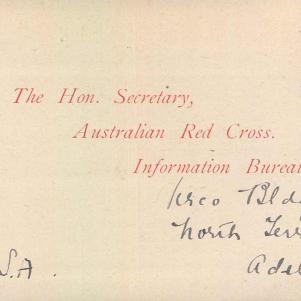 The Hon. Secretary,
Australian Red Cross.
Information Burea
Verco Bld
North Terr
S.A. Adel